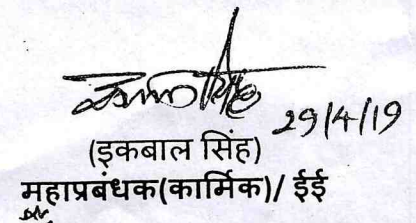 29/4/19
(इकबाल सिंह)
महाप्रबंधक(कार्मिक)/ ईई